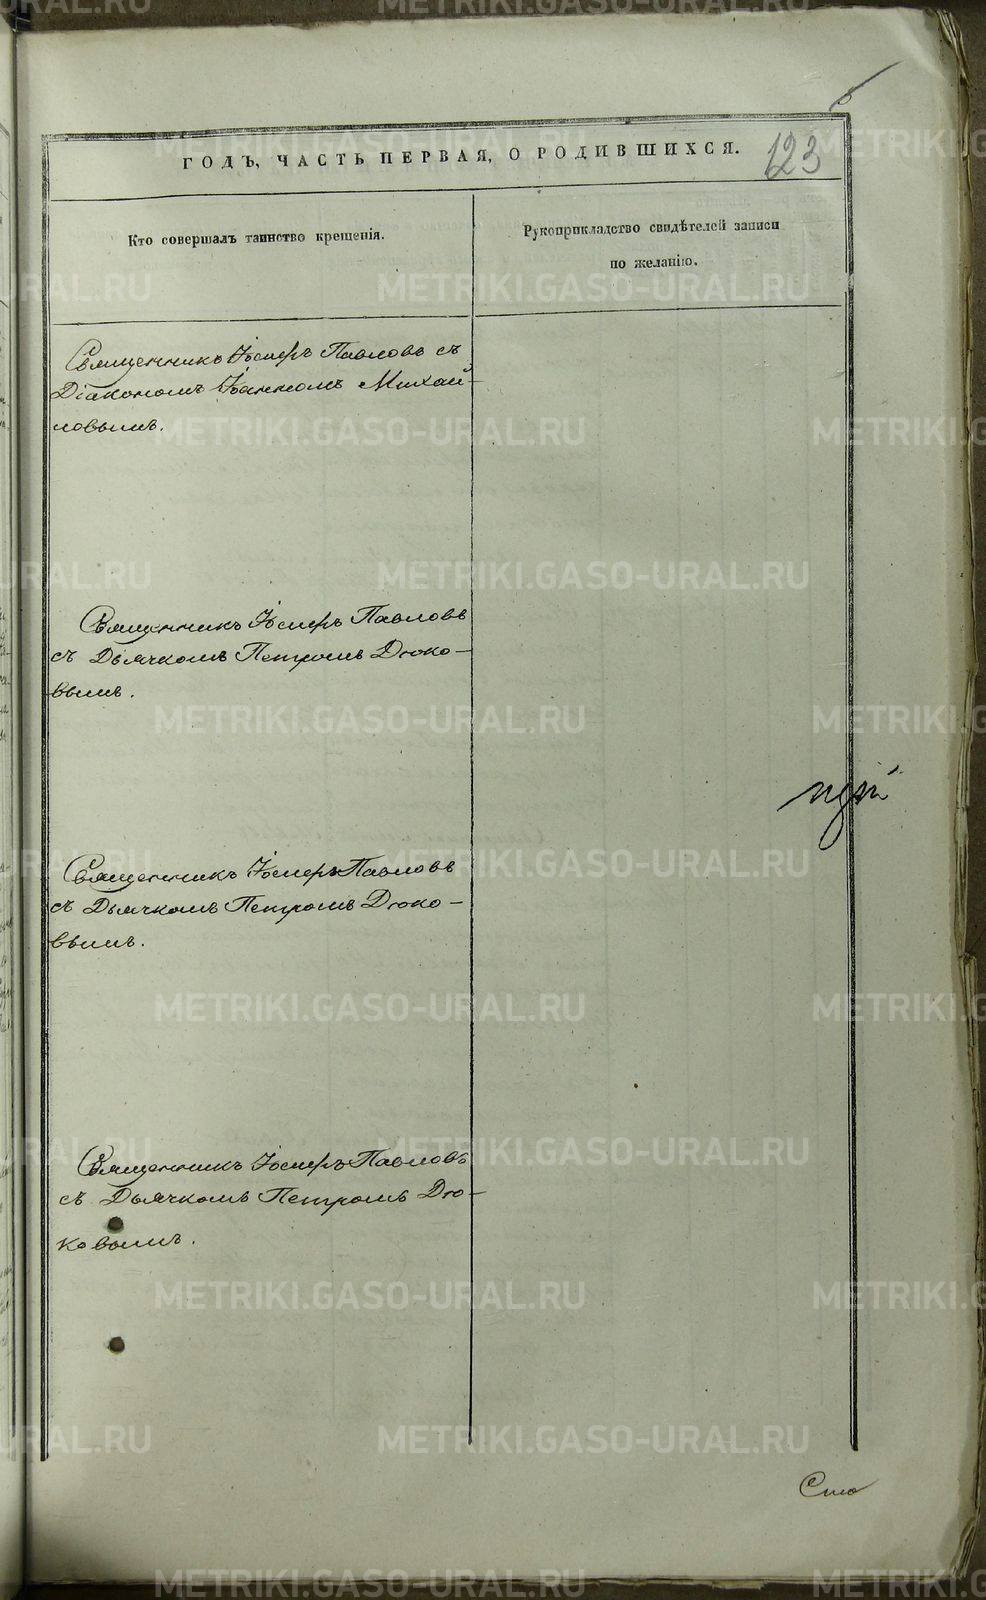 123
ГОДЪ, ЧАСТЬ ПЕРВАЯ, О РОДИВШИХСЯ.
Кто совершалъ таинство крещенія.
Рукоприкладство свидѣтелей записи
по желанію.
Священникъ Іосифъ Павловъ съ
Діакономъ Іоанномъ Михай-
ловымъ.
Священникъ Іосифъ Павловъ
съ Дьячкомъ Петромъ Дюко-
вымъ.
Священникъ Іосифъ Павловъ
съ Дьячкомъ Петромъ Дюко-
вымъ.
Священникъ Іосифъ Павловъ
съ Дьячкомъ Петромъ Дю-
ковымъ.
Сто
METRIKI.GASO-URAL.RU